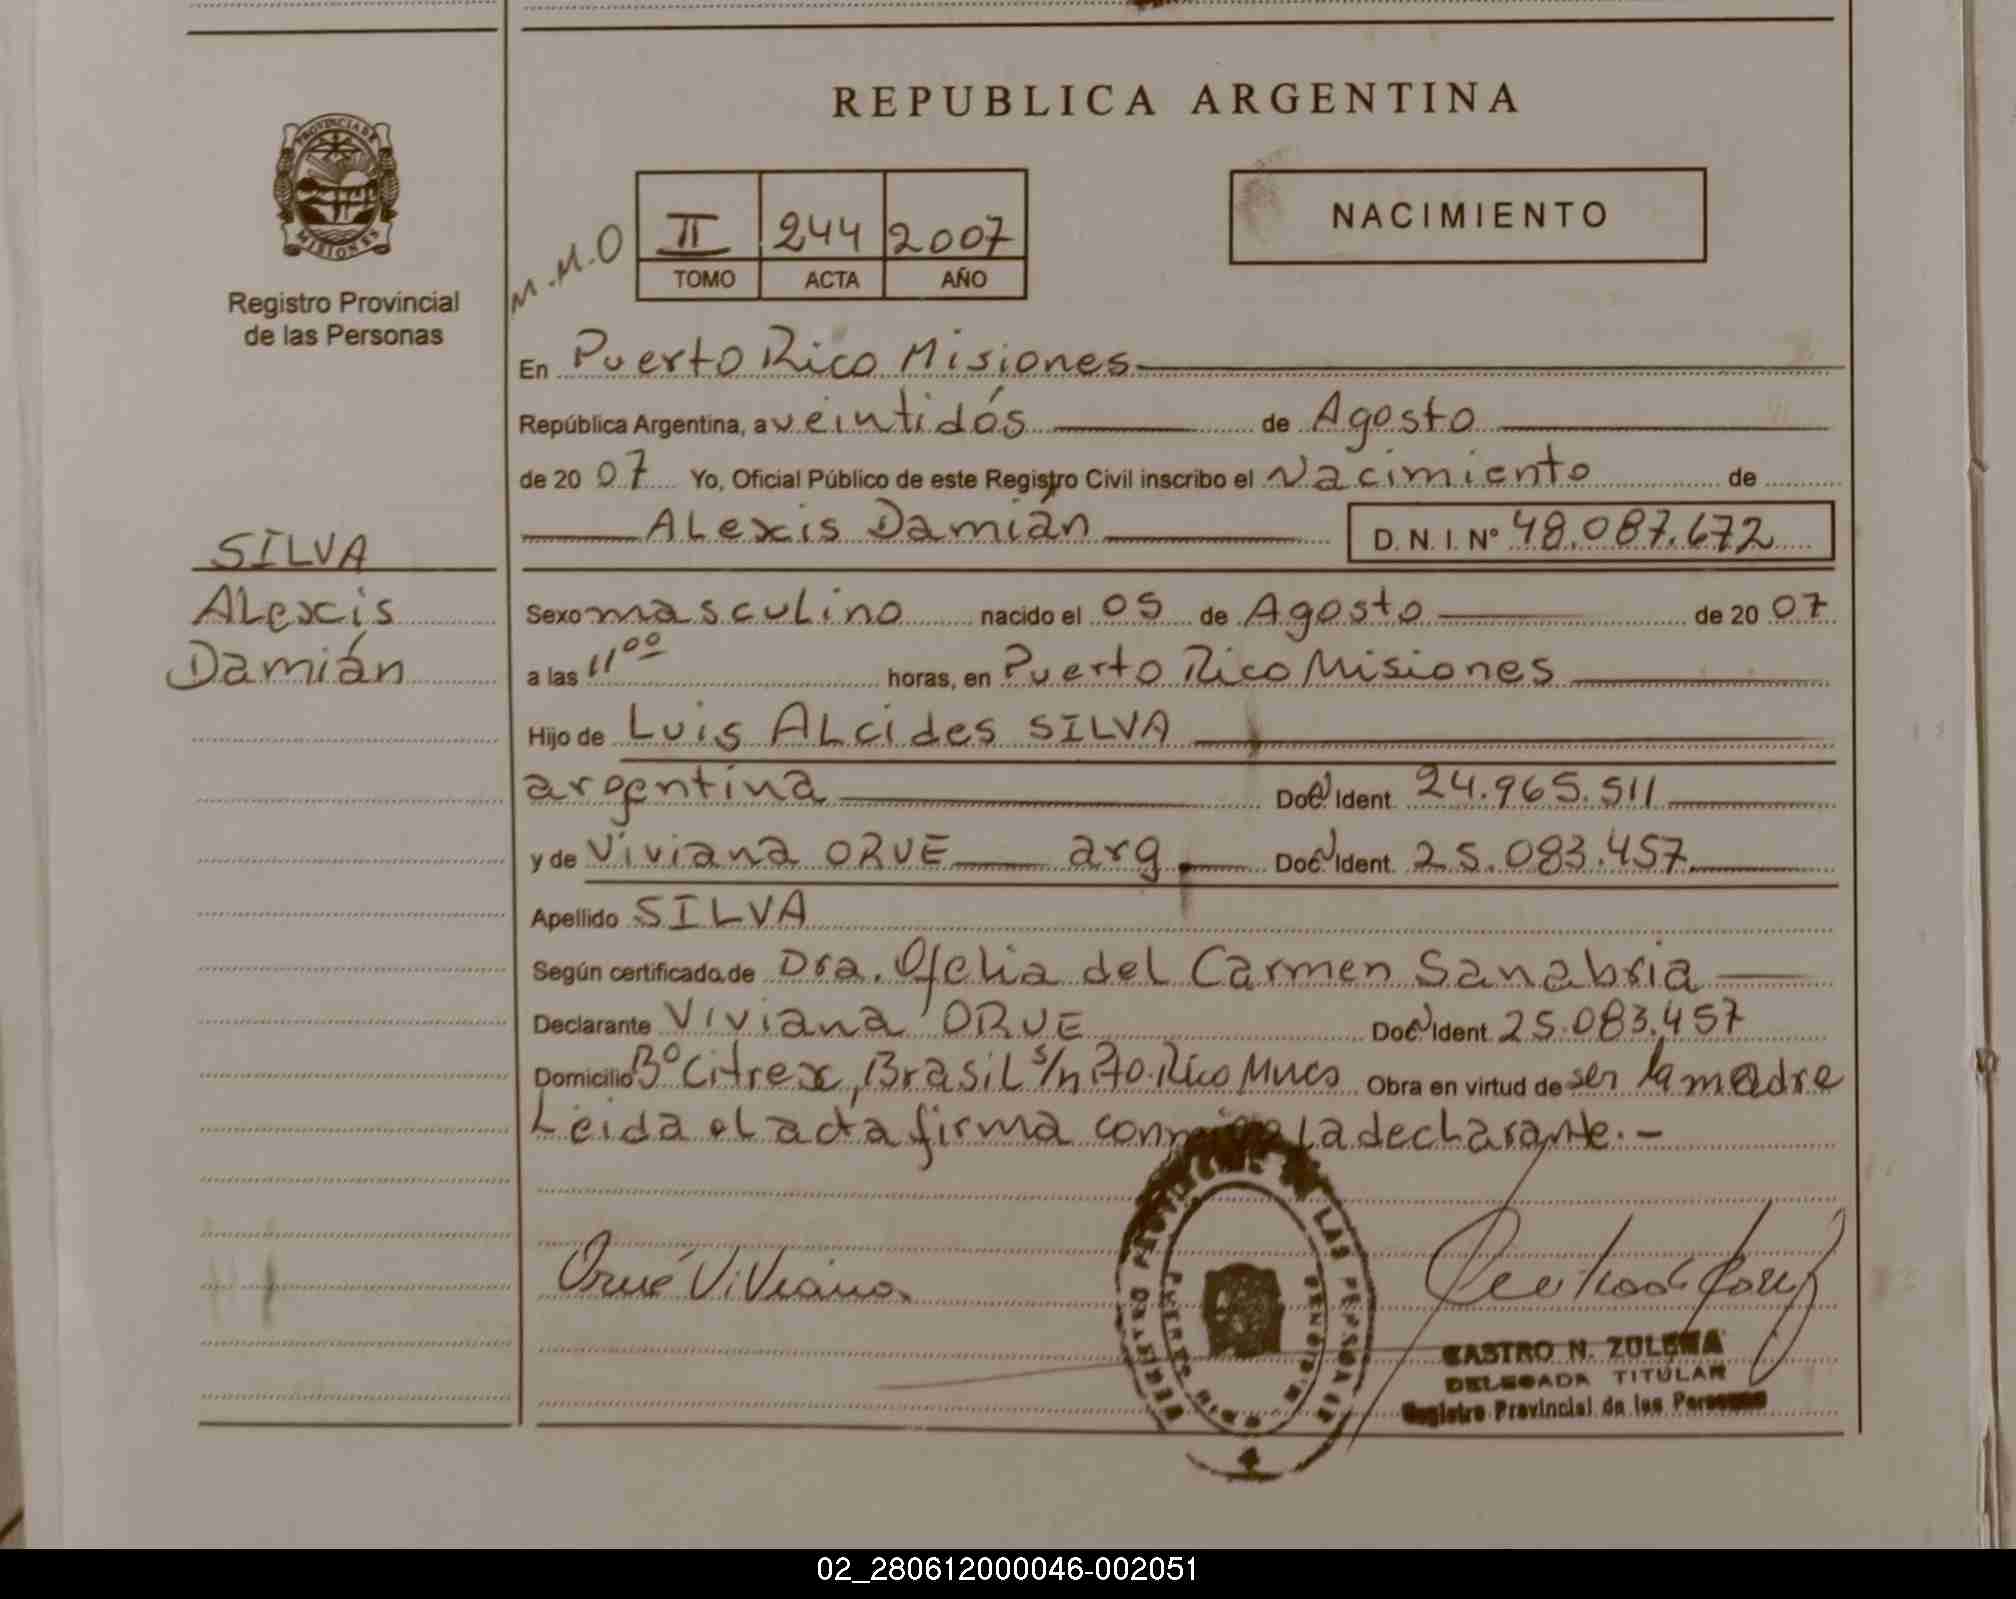 REPUBLICA ARGENTINA
PROVINCIA DE
MISIONES
Registro Provincial
de las Personas
M.M.O
II 244 2007
TOMO ACTA AÑO
NACIMIENTO
En Puerto Rico Misiones
República Argentina, a veintidós de Agosto
de 20 07 Yo, Oficial Público de este Registro Civil inscribo el Nacimiento de
Alexis Damián D. N. I. Nº 48.087.672
SILVA
Alexis
Damián
Sexo masculino nacido el 05 de Agosto de 20 07
a las 11 00 horas, en Puerto Rico Misiones
Hijo de Luis Alcides SILVA
argentina Doc. Ident. 24.965.511
y de Viviana ORUE arg. Doc. Ident. 25.083.457
Apellido SILVA
Según certificado de Dra. Ofelia del Carmen Sanabria
Declarante Viviana ORUE Doc. Ident. 25.083.457
Domicilio Bº Citrex, Brasil s/n Pto. Rico Mnes Obra en virtud de ser la madre
Leida el acta firma conmigo la declarante.-
Orué Viviana.
REGISTRO PROVINCIAL DE LAS PERSONAS
CASTRO N. ZULEMA
DELEGADA TITULAR
Registro Provincial de las Personas
02_280612000046-002051